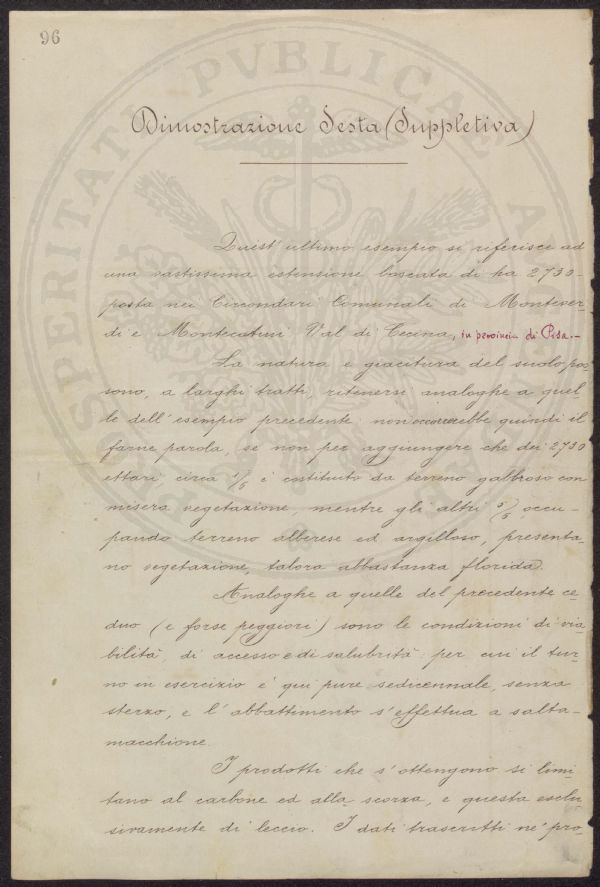 96
Dimostrazione Sesta (Suppletiva)
Quest'ultimo esempio si riferisce ad
una vastissima estensione boscata di ha 2730-
posta nei Circondari Comunali di Montever-
di e Montecatini Val di Cecina, in provincia di Pisa.-
La natura e giacitura del suolo pos-
sono, a larghi tratti, ritenersi analoghe a quel
le dell'esempio precedente: non occorrerebbe quindi il
farne parola, se non per aggiungere che dei 2730
ettari, circa 1/5 è costituito da terreno gabbroso con
misera vegetazione, mentre gli altri occu-
pando terreno alberese ed argilloso, presenta-
no vegetazione, talora abbastanza florida.
Analoghe a quelle del precedente ce-
duo (e forse peggiori) sono le condizioni di via-
bilità, di accesso e di salubrità: per cui il tur-
no in esercizio è qui pure sedicennale, senza
sterzo, e l'abbattimento s'effettua a salta-
macchione.
I prodotti che s'ottengono si limi-
tano al carbone ed alla scorza, e questa esclu-
sivamente di leccio. I dati trascritti ne' pro-
PROSPERITATI PVBLICAE AVGENDAE